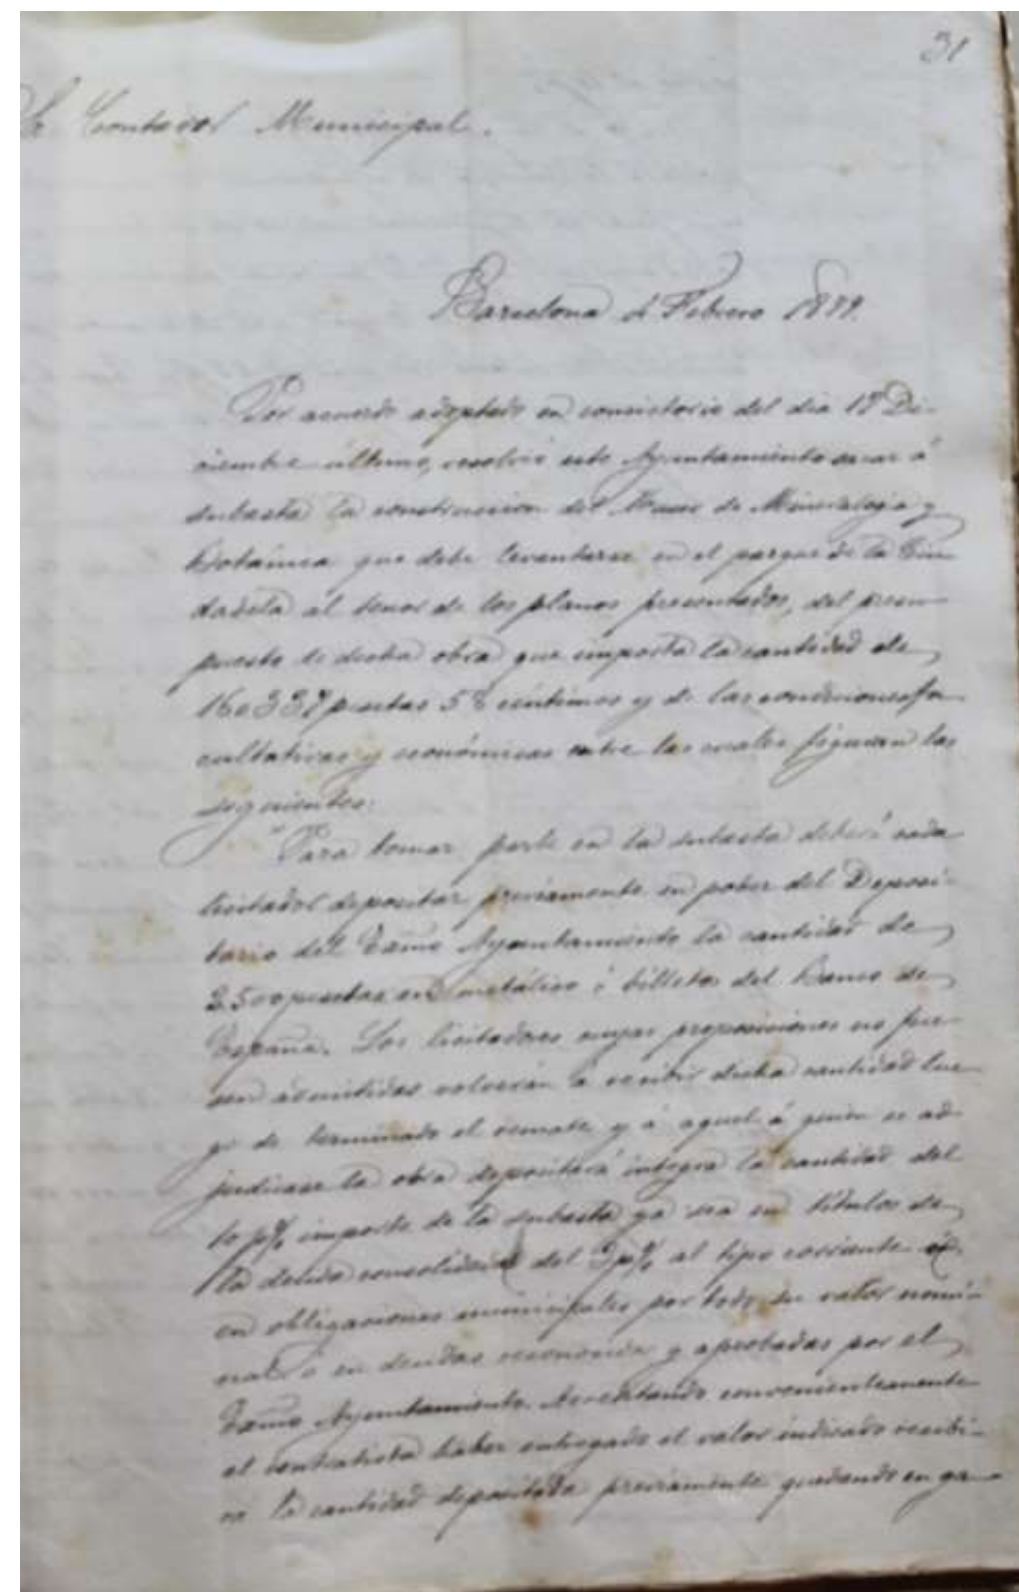 31
Sr Contador Municipal.
Barcelona de Febrero 1879.
Por acuerdo adoptado en consistorio del dia 17 Di-
ciembre último, resolvió este Ayuntamiento sacar á
subasta la construccion del Museo de Mineralogia y
Botánica que debe levantarse en el parque de la Ciu-
dadela al tenor de los planos presentados, del presu-
puesto de dicha obra que importa la cantidad de
160337 pesetas 58 céntimos y de las condiciones fa-
cultativas y económicas entre las cuales figuran las
siguientes:
"Para tomar parte en la subasta deberá cada
licitador depositar previamente en poder del Deposi-
tario del Excmo Ayuntamiento la cantidad de
2.500 pesetas en metálico ó billetes del Banco de
España. Los licitadores cuyas proposiciones no fue-
sen admitidas volverán á recibir dicha cantidad lue-
go de terminado el remate y á aquel á quien se ad-
judicase la obra depositará integra la cantidad del
10 p% importe de la subasta ya sea en títulos de
la deuda consolidada del 3 p% al tipo corriente ó
en obligaciones municipales por todo su valor nomi-
nal ó en deudas reconocidas y aprobadas por el
Excmo Ayuntamiento. Acreditando convenientemente
el contratista haber entregado el valor indicado recibi-
rá la cantidad depositada previamente quedando en ga-